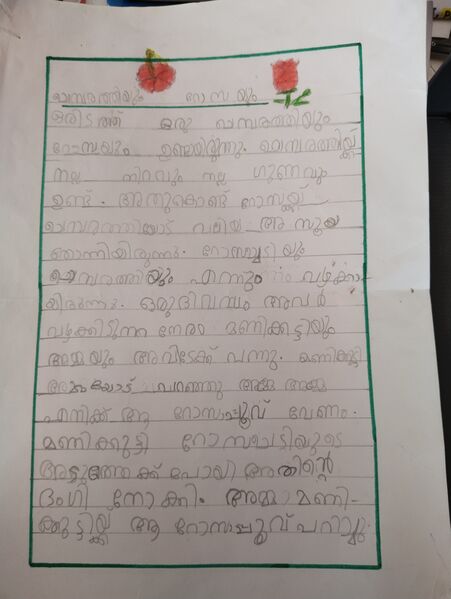 ചെമ്പരത്തിയും റോസയും
ഒരിടത്ത് ഒരു ചെമ്പരത്തിയും
റോസയും ഉണ്ടായിരുന്നു. ചെമ്പരത്തിയ്ക്ക്
നല്ല നിറവും നല്ല ഗുണവും
ഉണ്ട്. അതുകൊണ്ട് റോസയ്ക്ക്
ചെമ്പരത്തിയോട് വലിയ അസൂയ
തോന്നിയിരുന്നു. റോസാച്ചെടിയും
ചെമ്പരത്തിയും എന്നും വഴക്കാ-
യിരുന്നു. ഒരു ദിവസം അവർ
വഴക്കിടുന്ന നേരം മണിക്കുട്ടിയും
അമ്മയും അവിടേക്ക് വന്നു. മണിക്കുട്ടി
അമ്മയോട് പറഞ്ഞു അമ്മേ അമ്മേ
എനിക്ക് ആ റോസാപ്പൂവ് വേണം.
മണിക്കുട്ടി റോസചെടിയുടെ
അടുത്തേക്ക് പോയി അതിന്റെ
ഭംഗി നോക്കി. അമ്മ മണി-
ക്കുട്ടിയ്ക്ക് ആ റോസാപ്പൂവ് പറിച്ചു.